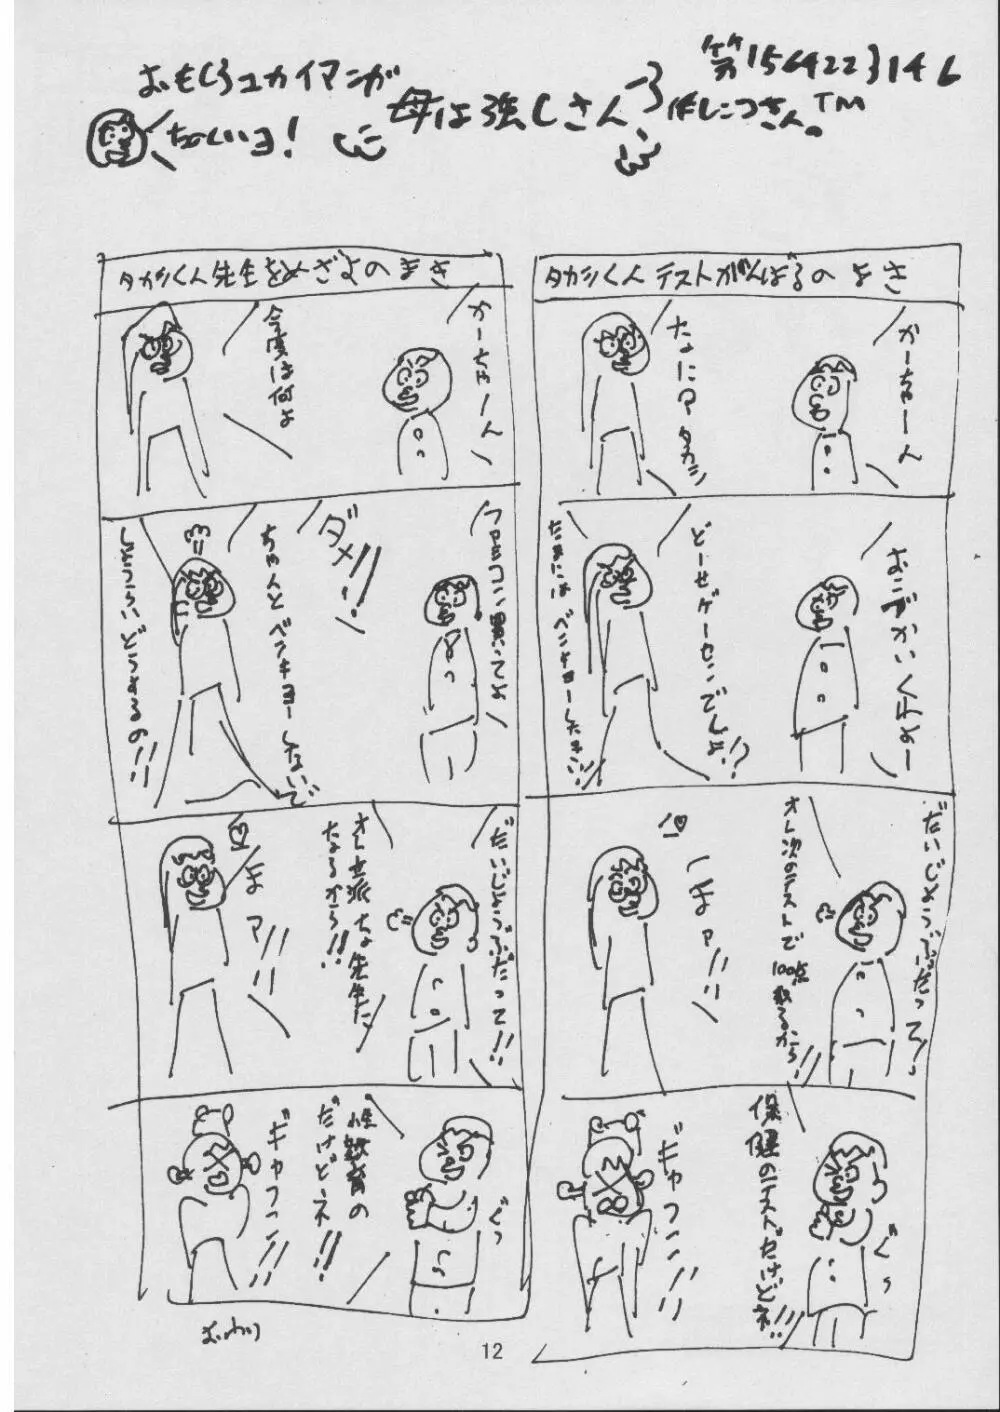 おもしろユカイマンガ
ちょいいヨ!
母は強しさん
第156422314 6
作しにつきさん。TM
タカシくんテストがんばるのまき
かーちゃーん
なにョ タカシ
おこづかいくれよー
どーせゲーセンでしょ!?
だめよ ベンキョーしなきゃ!!
だいじょうぶだって!!
オレ次のテストで100点取るから!!
しまァ!!
保健のテストだけどネ!!
ぐっ
ギャフン!!
タカシくん先生をめざすのまき
かーちゃーん
今度は何よ
マヨってない聞いてよ
ダメ!!
ちゃんとベンキョーしないで
しょうらいどうするの!!
だいじょうぶだって!!
オレ立派な先生に
なるから!!
まァ!!
性教育の
だけどネ!!
ぐっ
ギャフン!!
おわり
12